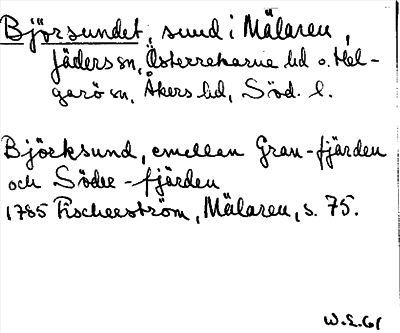 Björsundet, sund i Mälaren,
Jäders sn, Österrekarne hd o. Hel-
garö sn, Åkers hd, Söd. l.
Björksund, emellan Gran-fjärden
och Söder-fjärden
1785 Fischerström, Mälaren, s. 75.
W.E.61